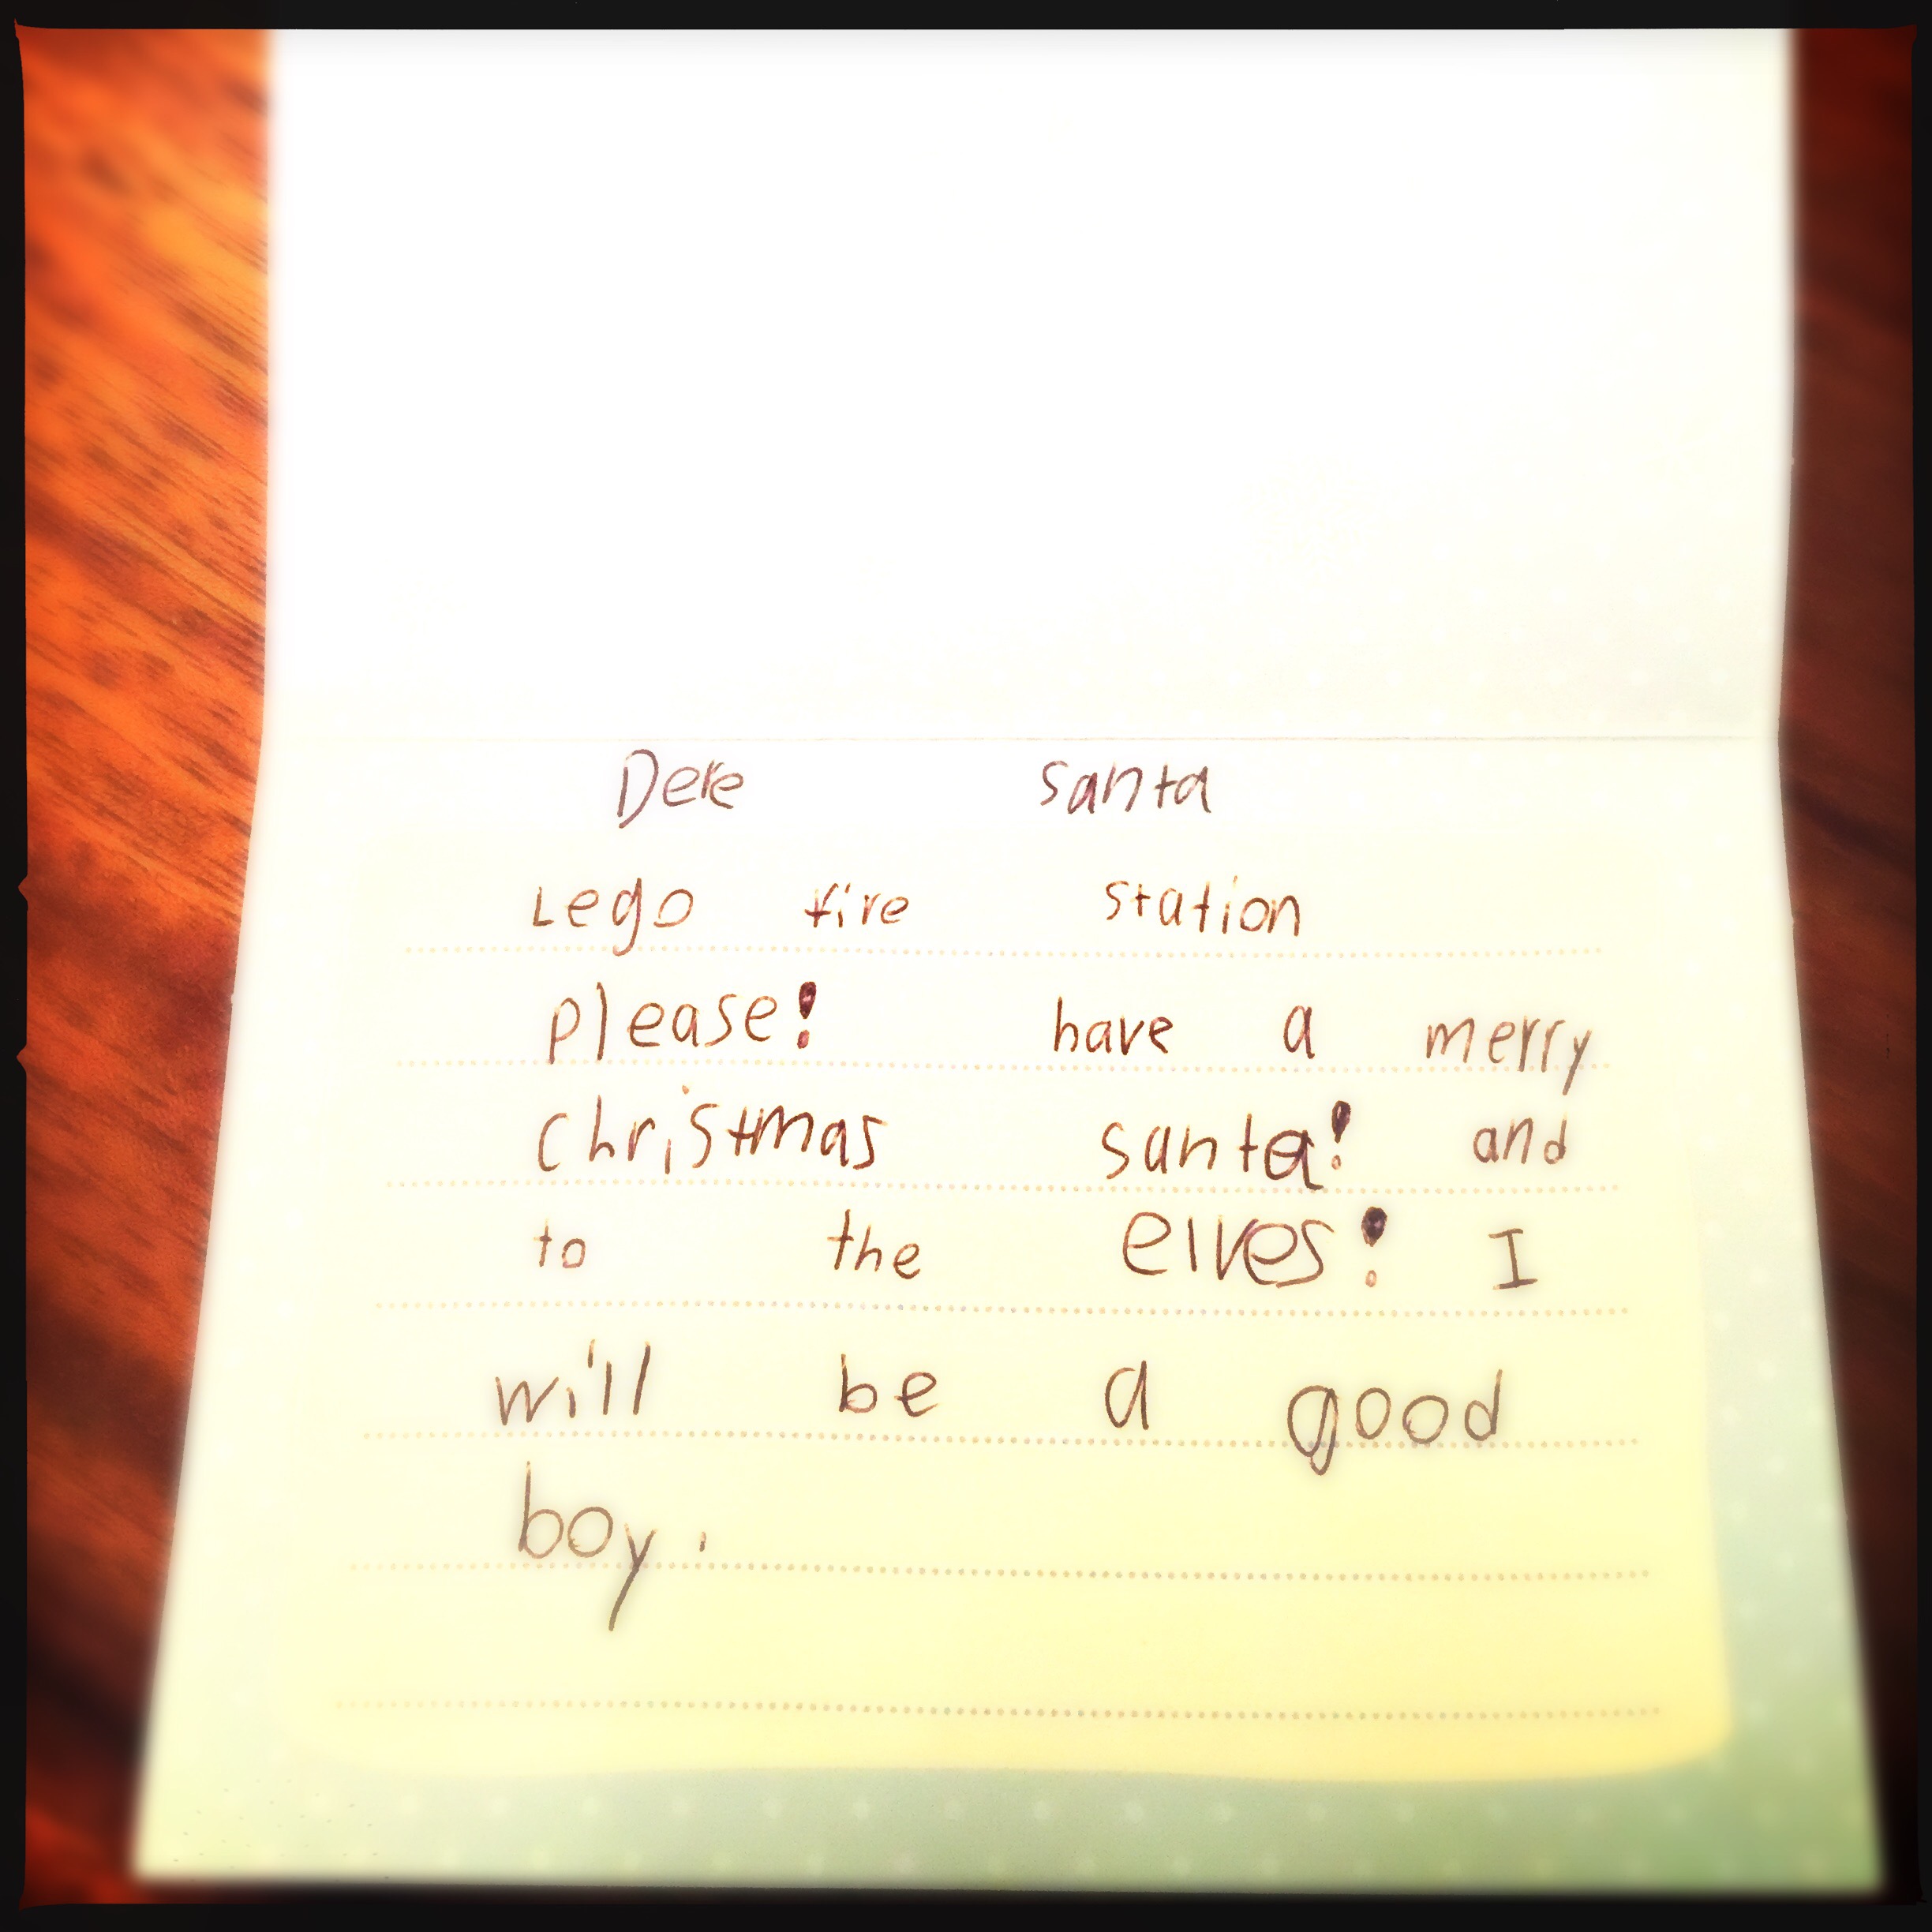 Dere santa
Lego fire station
please! have a merry
christmas santa! and
to the elves! I
will be a good
boy.